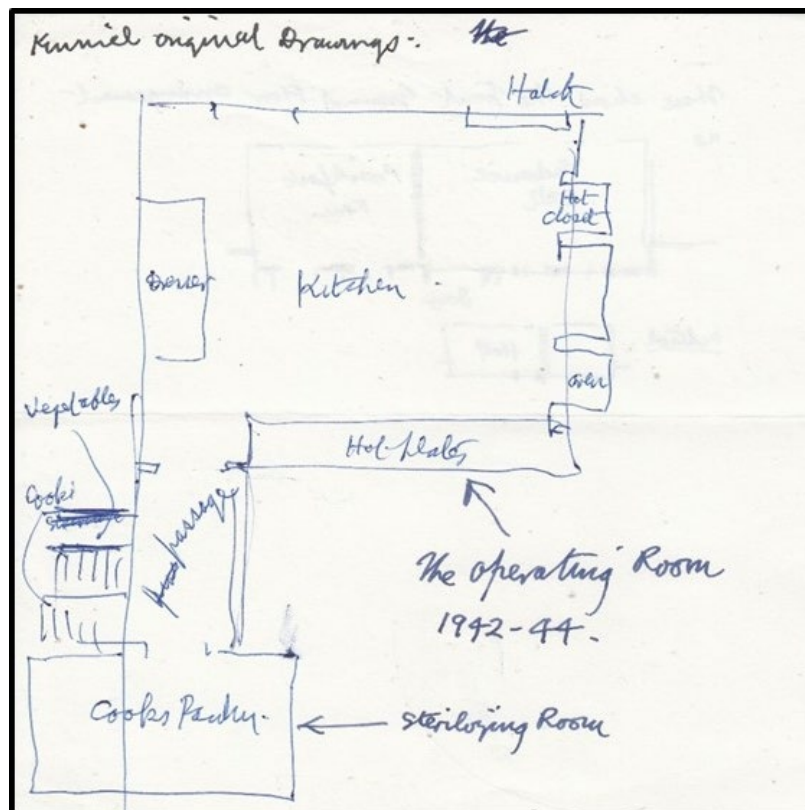 Kinniel original Drawings:-
Hatch
Hot
closet
Dresser
Kitchen
oven
Vegetables
Hot-plates
Cooks
passage
The operating Room
1942-44.
Cooks Pantry.
Sterilizing Room